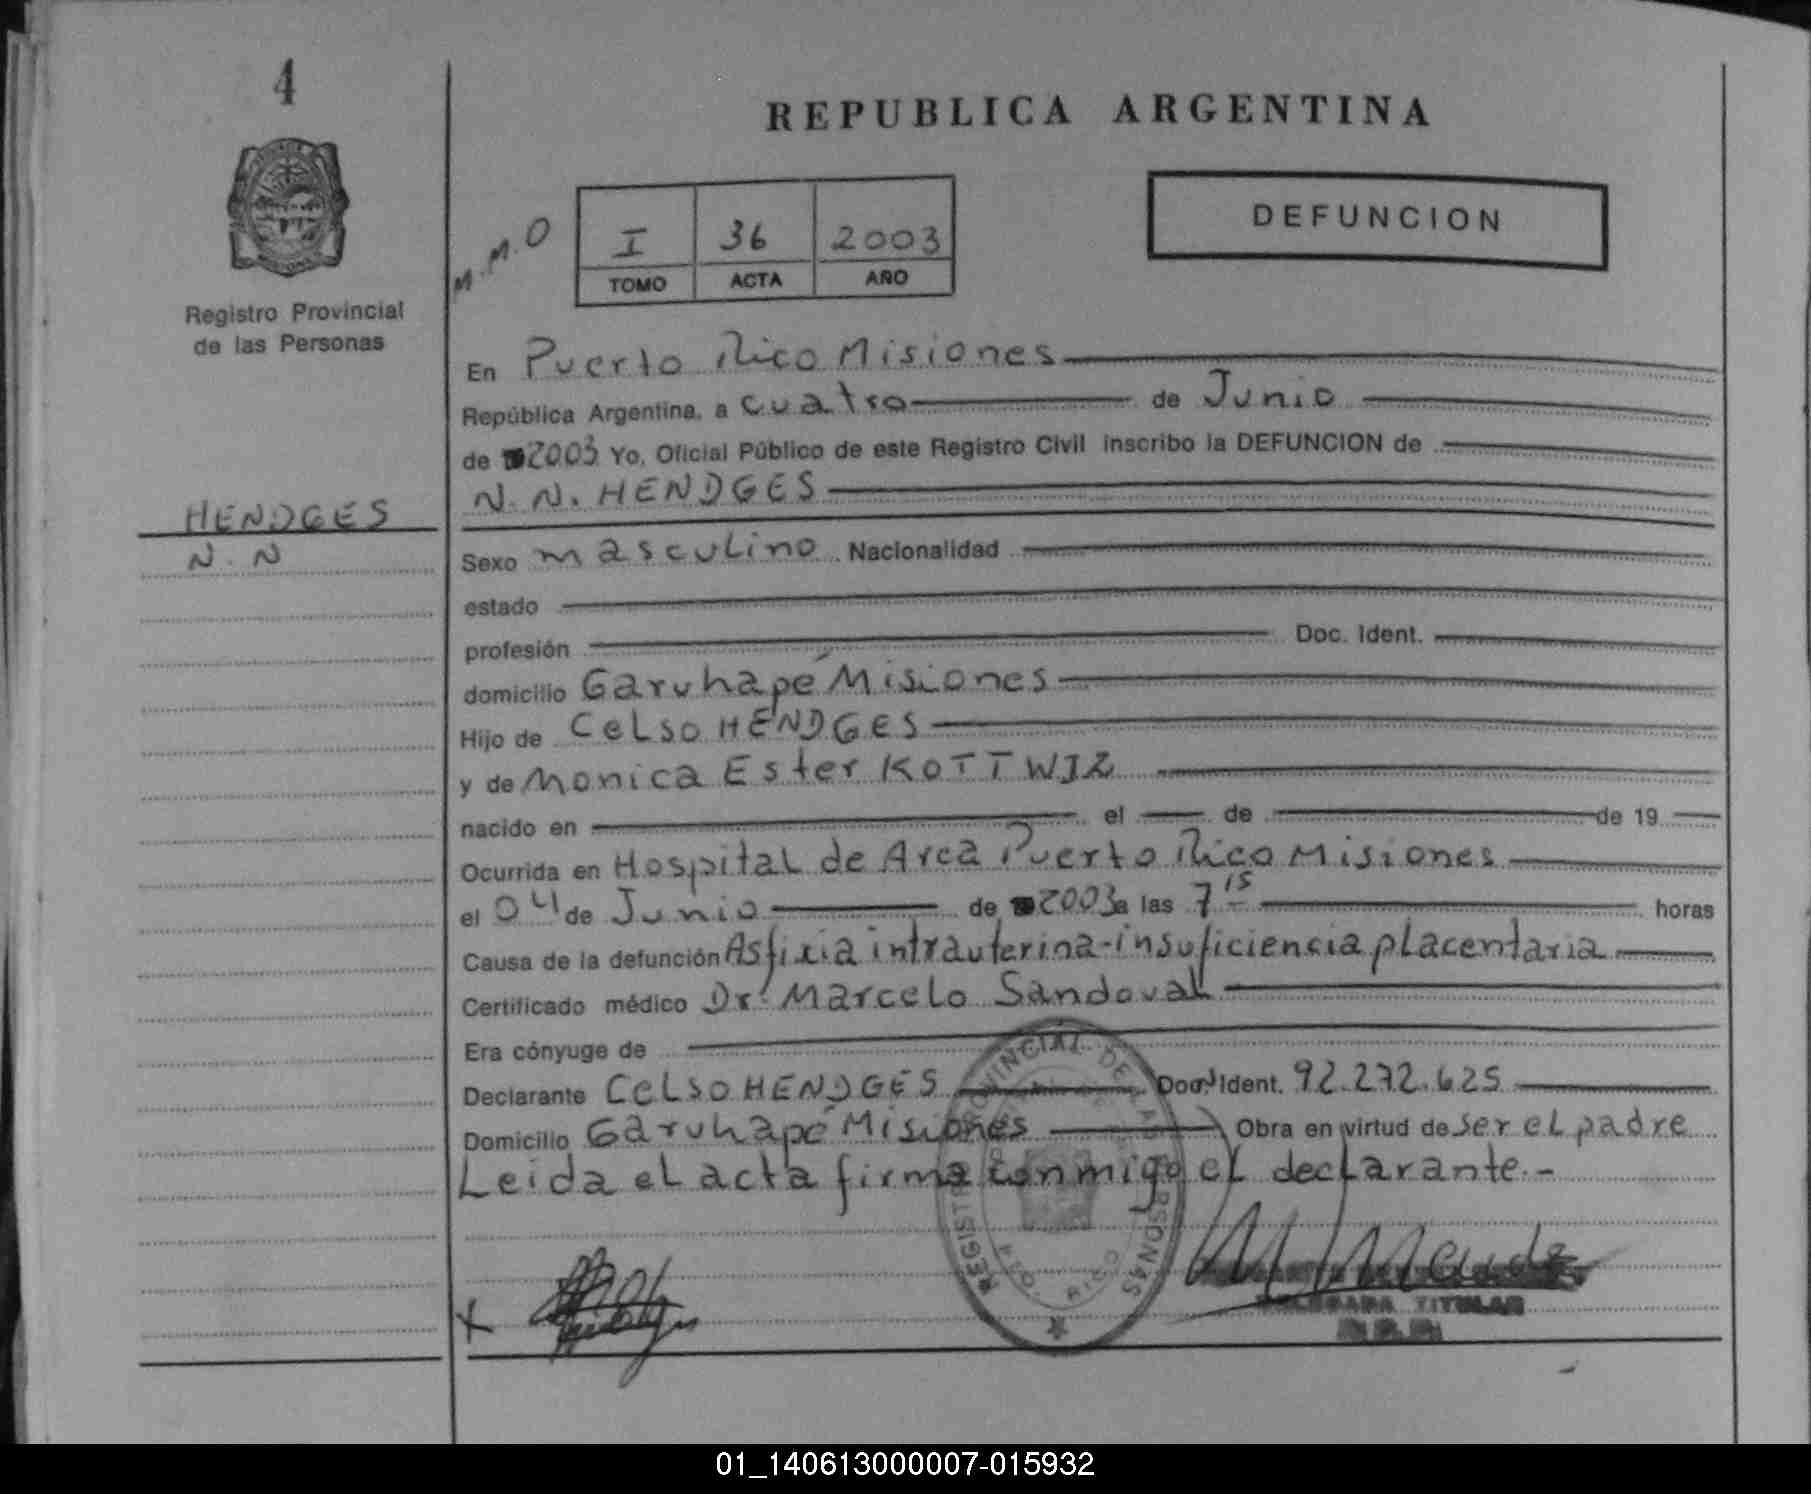 4
REPUBLICA ARGENTINA
Registro Provincial
de las Personas
M.M.O
I 36 2003
TOMO ACTA AÑO
DEFUNCION
En Puerto Rico Misiones
República Argentina, a cuatro de Junio
de 2003 Yo, Oficial Público de este Registro Civil inscribo la DEFUNCION de
N.N. HENDGES
HENDGES
N.N
Sexo masculino Nacionalidad
estado
profesión Doc. Ident.
domicilio Garuhapé Misiones
Hijo de Celso HENDGES
y de Monica Ester KOTTWIZ
nacido en el de de 19
Ocurrida en Hospital de Area Puerto Rico Misiones
el 04 de Junio de 2003 a las 7 15 horas
Causa de la defunción Asfixia intrauterina-insuficiencia placentaria
Certificado médico Dr. Marcelo Sandoval
Era cónyuge de
Declarante Celso HENDGES Doc. Ident. 92.272.625
Domicilio Garuhapé Misiones Obra en virtud de ser el padre
Leida el acta firma conmigo el declarante.-
REGISTRO PROVINCIAL DE LAS PERSONAS
PTO. RICO
X
DELEGADA TITULAR
01_140613000007-015932